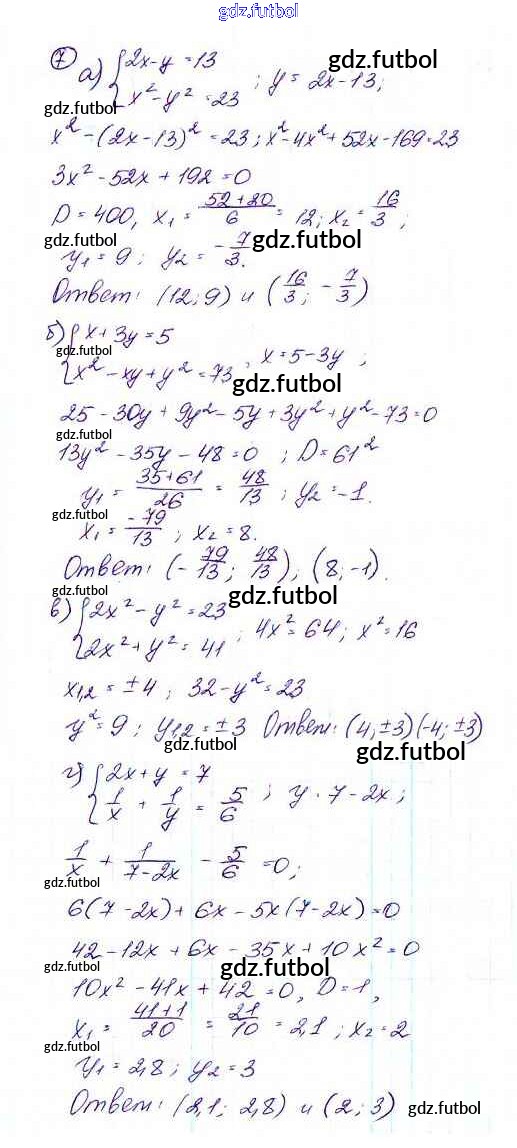 gdz.futbol
7 а) {2x-y=13
gdz.futbol
{x²-y²=23 ; y=2x-13;
gdz.futbol
x²-(2x-13)²=23; x²-4x²+52x-169=23
3x²-52x+192=0
D=400, x₁=(52+20)/6=12; x₂=16/3;
gdz.futbol
y₁=9; y₂=-7/3.
gdz.futbol
Ответ: (12;9) и (16/3; -7/3)
б) {x+3y=5
gdz.futbol
{x²-xy+y²=73, x=5-3y;
gdz.futbol
25-30y+9y²-5y+3y²+y²-73=0
gdz.futbol
13y²-35y-48=0; D=61²
y₁=(35+61)/26=48/13; y₂=-1.
gdz.futbol
x₁=-79/13; x₂=8.
Ответ: (-79/13; 48/13), (8;-1).
gdz.futbol
в) {2x²-y²=23
{2x²+y²=41; 4x²=64; x²=16
gdz.futbol
x₁,₂=±4; 32-y²=23
y²=9; y₁,₂=±3 Ответ: (4;±3)(-4;±3)
gdz.futbol
gdz.futbol
г) {2x+y=7
{1/x+1/y=5/6; y=7-2x;
1/x+1/(7-2x)-5/6=0;
gdz.futbol
6(7-2x)+6x-5x(7-2x)=0
42-12x+6x-35x+10x²=0
gdz.futbol
gdz.futbol
10x²-41x+42=0, D=1,
x₁=(41+1)/20=21/10=2,1; x₂=2
gdz.futbol
y₁=2,8; y₂=3
Ответ: (2,1; 2,8) и (2;3)
gdz.futbol